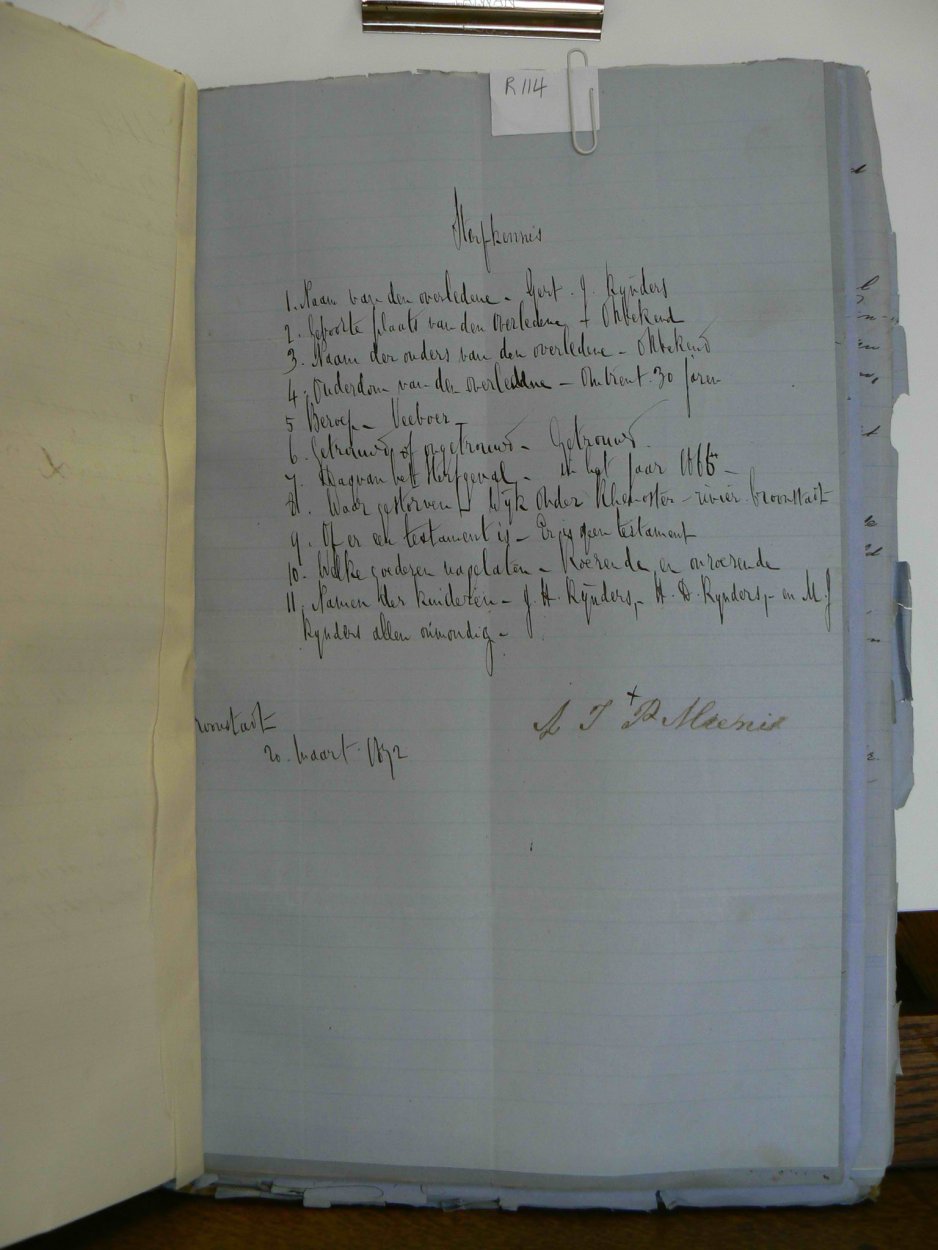 TAIWAN
R 114
Sterfkennis
1. Naam van den overledene - Gert. J. Rynders
2. Geboorte plaats van den overledene - Onbekend
3. Naam der ouders van den overledene - Onbekend
4. Ouderdom van den overledene - Omtrent 30 jaren
5 Beroep - Veeboer -
6. Getrouwd of ongetrouwd - Getrouwd -
7. Dag van het Sterfgeval - in het Jaar 1866 -
8. Waar gestorven - Wyk Onder Rhenoster - rivier. Kroonstadt
9. Of er een testament is - Er is geen testament
10. Welke goederen nagelaten - Roerende en onroerende
11. Namen der kinderen - J. H. Rynders, H. D. Rynders, en M. J
Rynders allen onmondig -
roonstadt
20. Maart 1872
T P